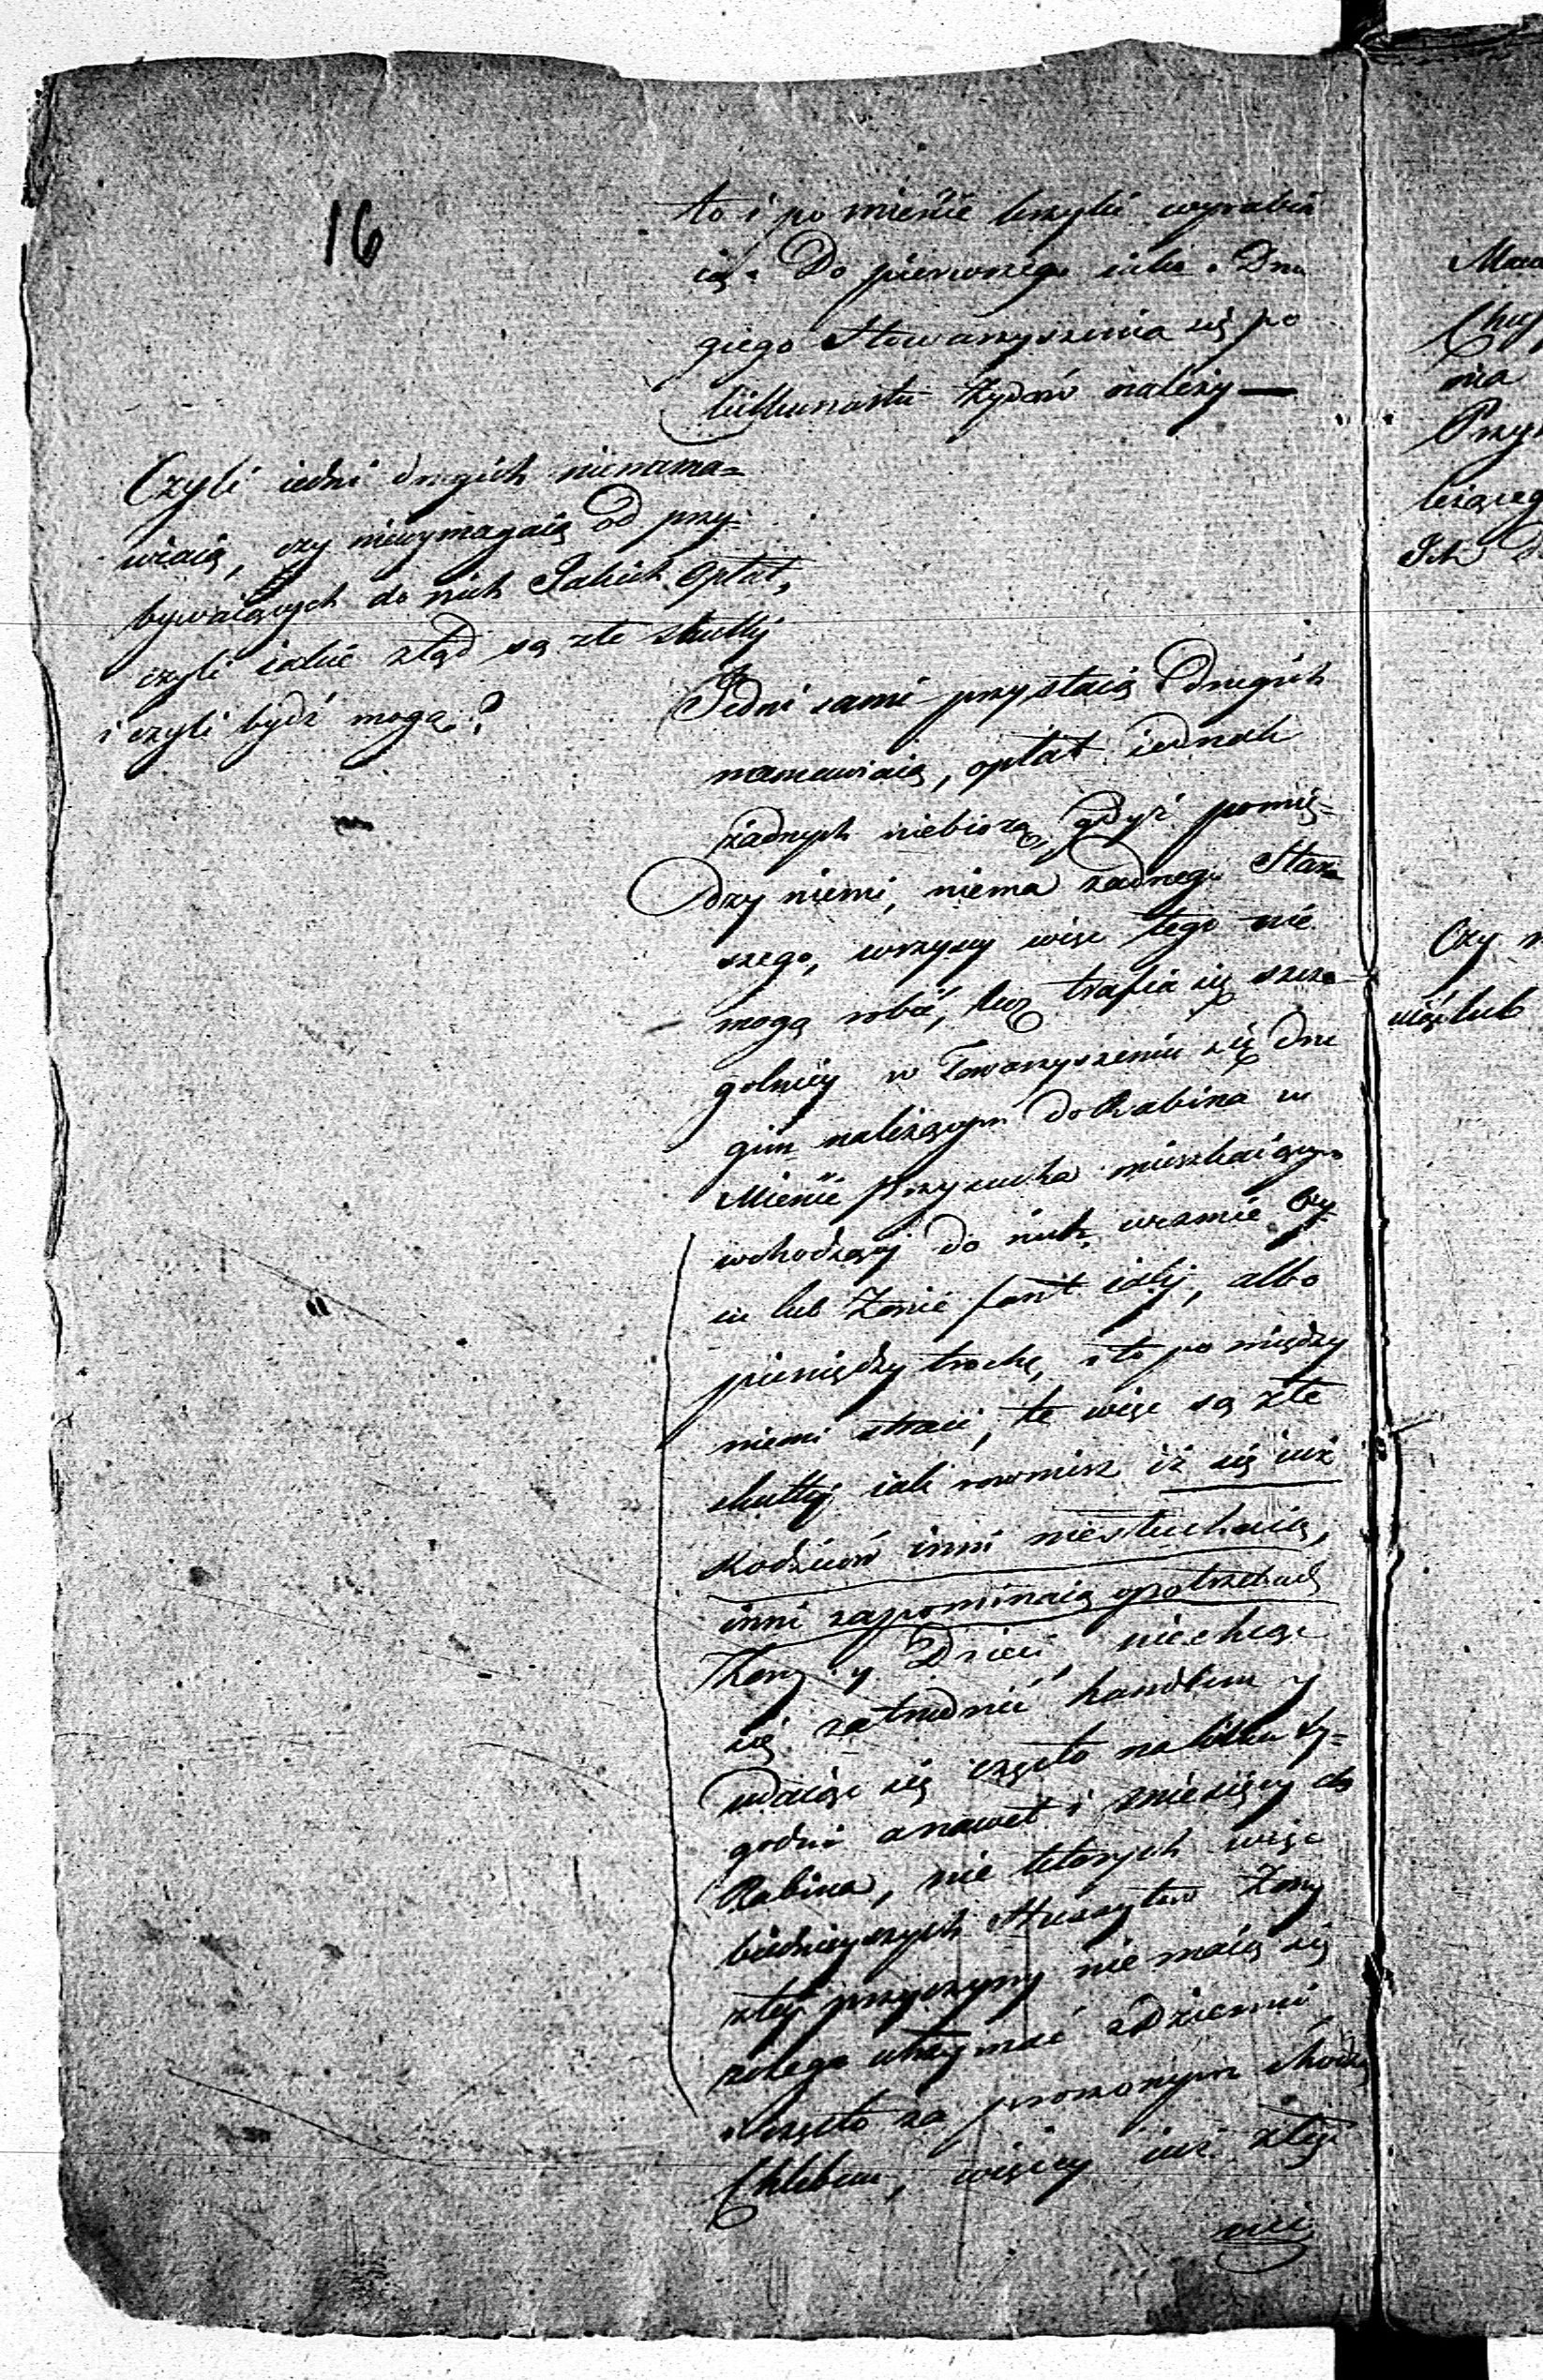 16
to i po mieście krzyki wyrabia
ią. Do pierwszego iako Dru
giego Stowarzyszenia się po
kilkunastu Żydów należy —
Czyli iedni drugich nienama-
wiaią, czy niewymagaią od przy-
bywaiących do nich Jakich Opłat,
czyli iakie ztąd są złe skutki
i czyli bydź mogą?
Jedni sami przystaią drugich
namawiaią, opłat iednak
żadnych niebiorą, gdyż pomię-
dzy niemi, niema żadnego Star
szego, wszyscy więc tego nie
mogą robić, lecz trafia się szcze
golniey w Towarzyszeniu się dru
gim należącym do Rabina w
Mieście Przysucha mieszkaiącym
wchodzący do nich weźmie Oy-
cu lub Żonie fant iaki, albo
pieniędzy trochę, i to po między
niemi straci, te więc są złe
skutki iak rownież iż się iuż
Rodziców inni niesłuchaią,
inni zapominaią o potrzebach
Żony y Dzieci niechcąc
się zatrudnić handlem y
udaiąc się często na kilka ty-
godni a nawet i miesięcy do
Rabina, nie ktorych więc
biednieyszych Hussytów Żony
z tey przyczyny nie maią się
z czego utrzymać z Dziećmi
i często za proszonym chodzą
Chlebem, więcey iuż z tey
Maca
ma
Przy
leżącego
Ich
Czy
lub